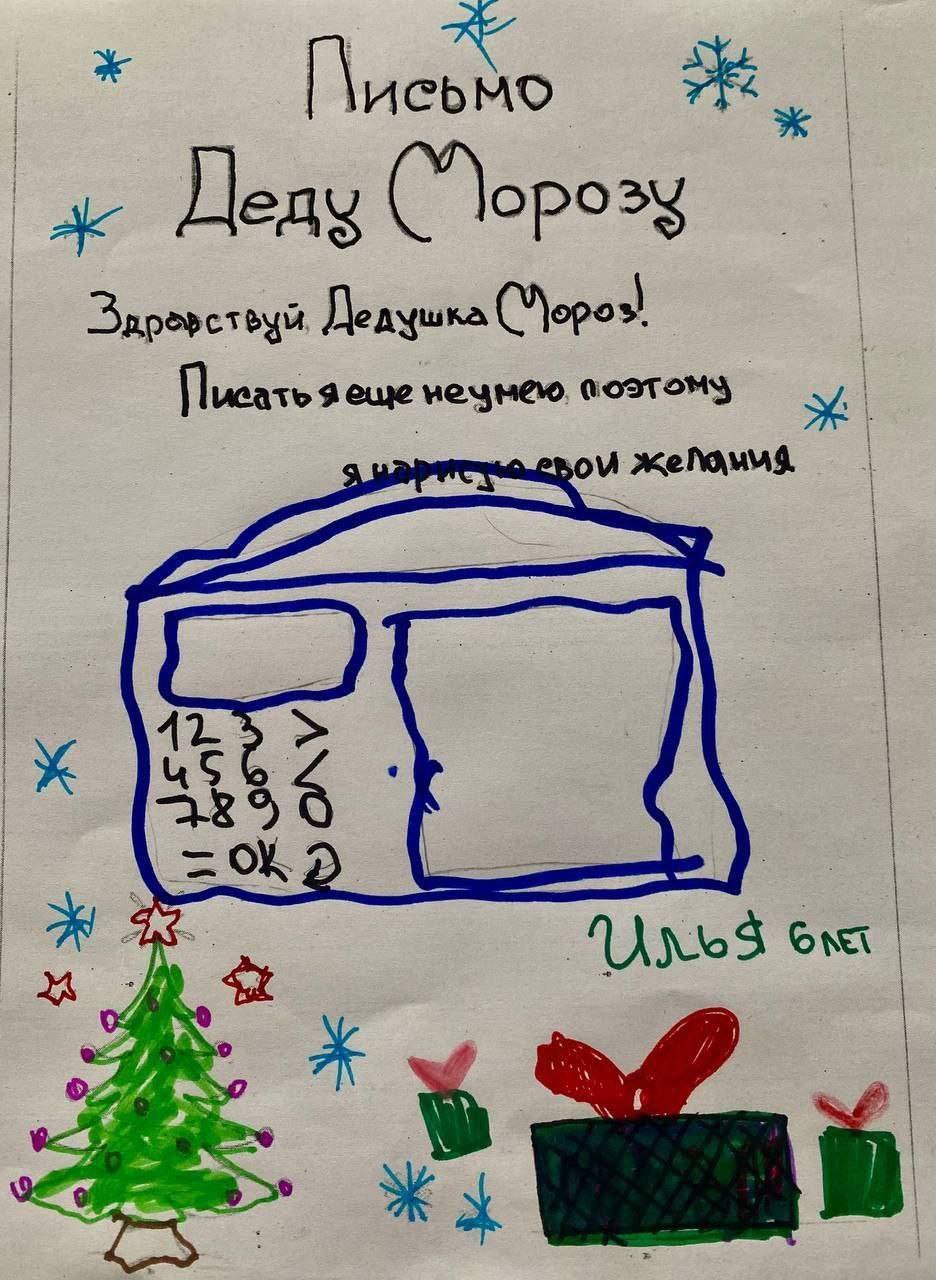 Письмо
Деду Морозу
Здравствуй Дедушка Мороз!
Писать я еще не умею поэтому
я нарисую свои желания
1 2 3 >
4 5 6 <
7 8 9 0
= ОК
Илья 6 лет